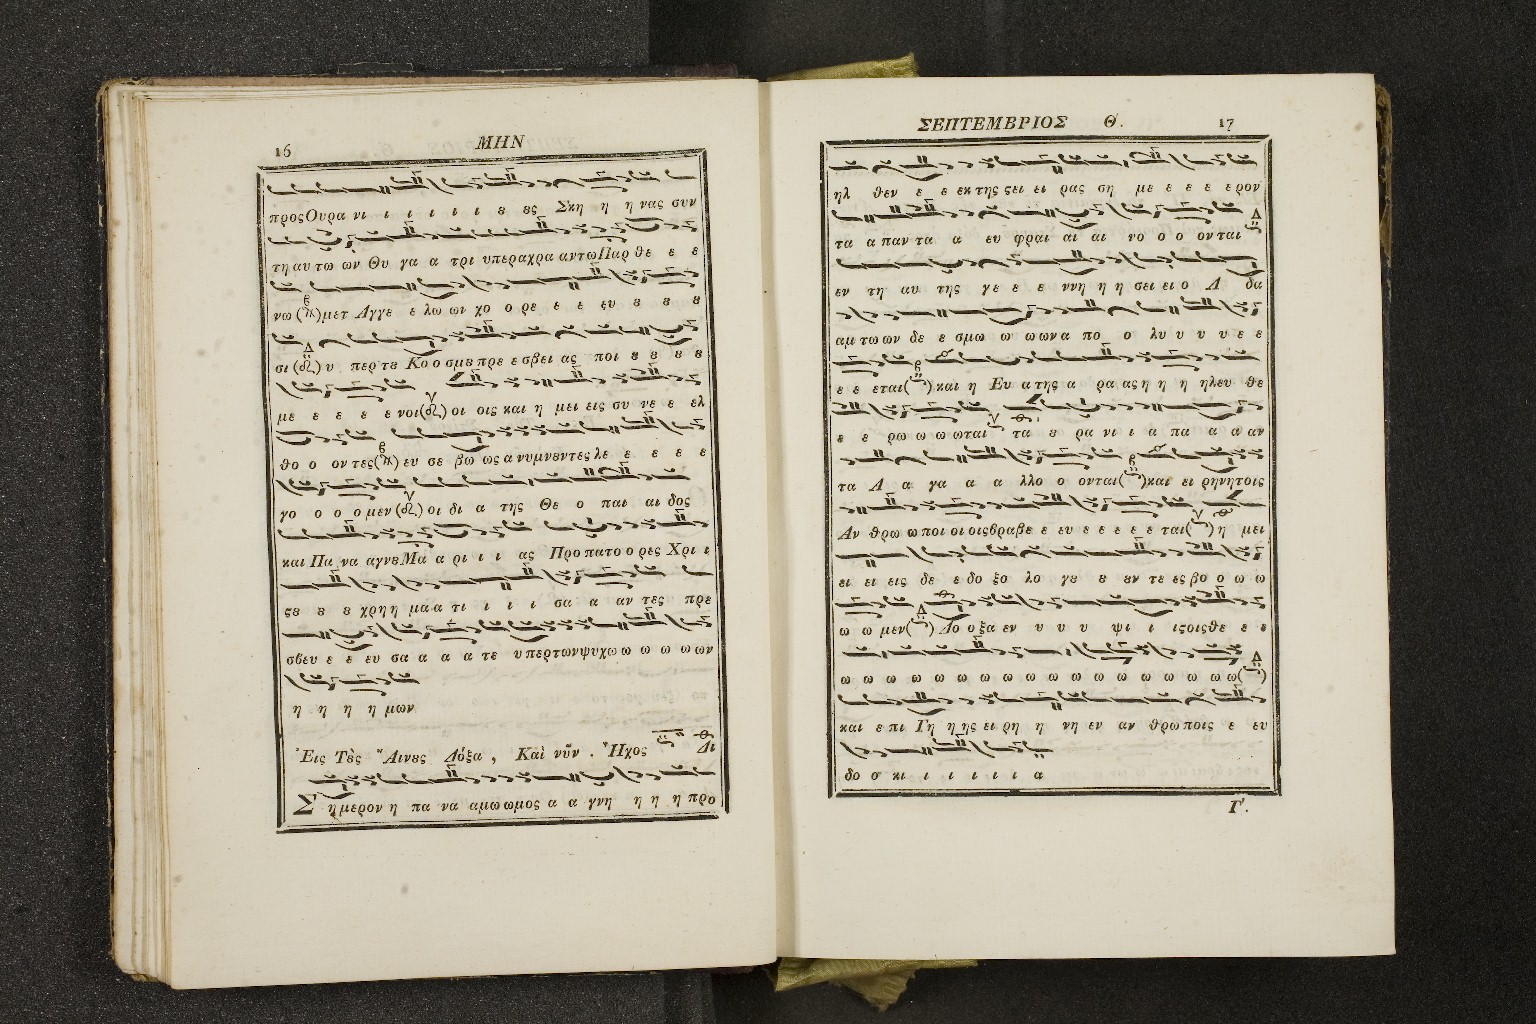 16 ΜΗΝ
προςΟυρα νι ι ι ι ι ι ȣ ȣς Σκη η η νας συν
τη αυ τω ων Θυ γα α τρι υπεραχρα αντωΠαρ θε ε ε
νω ( )μετ Αγγε ε λω ων χο ο ρε ε ε ευ ȣ ȣ ȣ
σι ( ) υ περ τȣ Κο ο σμȣ πρε ε σβει ας ποι ȣ ȣ ȣ ȣ
με ε ε ε ε νοι( ) οι οις και η μει εις συ νε ε ελ
θο ο ον τες( ) ευ σε βω ως α νυμνȣντες λε ε ε ε ε
γο ο ο ο μεν ( ) οι δι α της Θε ο παι αι δος
και Πα να αγνȣΜα α ρι ι ι ας Προ πατο ο ρες Χρι ι
ςȣ ȣ ȣ χρη η μα α τι ι ι ι σα α αν τες πρε
σβευ ε ε ευ σα α α α τε υπερτωνψυχω ω ω ω ω ων
η η η η μων
Ἐις Τȣ̀ς Ἄινȣς Δόξα , Καὶ νῦν . Ἦχος Δι
Σ ημερον η πα να αμω ωμος α α γνη η η η προ
ΣΕΠΤΕΜΒΡΙΟΣ Θ. 17
ηλ θεν ε ε εκ της ςει ει ρας ση με ε ε ε ερον
τα α παν τα α ευ φραι αι αι νο ο ο ονται Δ
εν τη αυ της γε ε ε ννη η η σει ει ο Α δα
αμ τω ων δε ε σμω ω ω ωνα πο ο λυ υ υ υ ε ε
ε ε εται( ) και η Ευ α της α ρα ας η η η ηλευ θε
ε ε ρω ω ω ωται τα ȣ ρα νι ι α πα α α αν
τα Α α γα α α λλο ο ονται( )και ει ρηνητοις
Αν θρω ω ποι οι οιςβραβε ε ευ ε ε ε ε ε ται( ) η μει
ει ει εις δε ε δο ξο λο γȣ ȣ ȣν τε ες βο ο ω ω
ω ω μεν( ) Δο ο ξα εν υ υ υ ψι ι ιςοιςθε ε ε
ω ω ω ω ω ω ω ω ω ω ω ω ω ω ω ω ω ω( )
και ε πι Γη η ης ει ρη η νη εν αν θρω ποις ε ευ
δο ο κι ι ι ι ι ι α
Γ'.